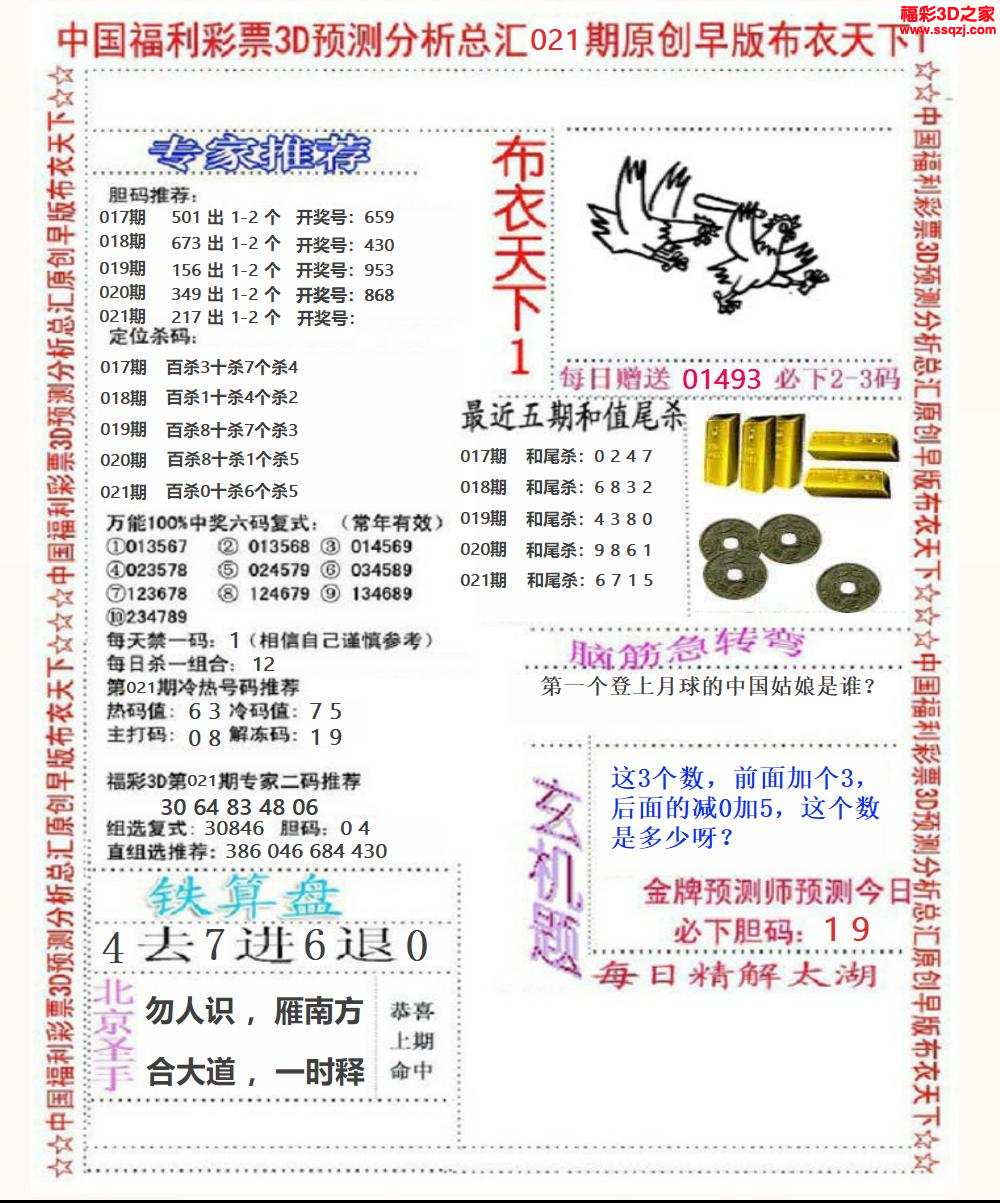 福彩3D之家
www.ssqzj.com
中国福利彩票3D预测分析总汇021期原创早版布衣天下1
☆☆中国福利彩票3D预测分析总汇原创早版布衣天下☆☆中国福利彩票3D预测分析总汇原创早版布衣天下☆☆
专家推荐
胆码推荐:
017期 501 出 1-2 个 开奖号: 659
018期 673 出 1-2 个 开奖号: 430
019期 156 出 1-2 个 开奖号: 953
020期 349 出 1-2 个 开奖号: 868
021期 217 出 1-2 个 开奖号:
定位杀码:
017期 百杀3十杀7个杀4
018期 百杀1十杀4个杀2
019期 百杀8十杀7个杀3
020期 百杀8十杀1个杀5
021期 百杀0十杀6个杀5
万能100%中奖六码复式: (常年有效)
①013567 ② 013568 ③ 014569
④023578 ⑤ 024579 ⑥ 034589
⑦123678 ⑧ 124679 ⑨ 134689
⑩234789
每天禁一码: 1(相信自己谨慎参考)
每日杀一组合: 12
第021期冷热号码推荐
热码值: 6 3 冷码值: 7 5
主打码: 0 8 解冻码: 1 9
福彩3D第021期专家二码推荐
30 64 83 48 06
组选复式: 30846 胆码: 0 4
直组选推荐: 386 046 684 430
铁算盘
4去7进6退0
北京圣手
勿人识，雁南方
合大道，一时释
恭喜
上期
命中
布衣天下1
每日赠送 01493 必下2-3码
最近五期和值尾杀
017期 和尾杀: 0 2 4 7
018期 和尾杀: 6 8 3 2
019期 和尾杀: 4 3 8 0
020期 和尾杀: 9 8 6 1
021期 和尾杀: 6 7 1 5
脑筋急转弯
第一个登上月球的中国姑娘是谁?
玄机题
这3个数，前面加个3，
后面的减0加5，这个数
是多少呀?
金牌预测师预测今日
必下胆码: 1 9
每日精解太湖
☆☆中国福利彩票3D预测分析总汇原创早版布衣天下☆☆中国福利彩票3D预测分析总汇原创早版布衣天下☆☆